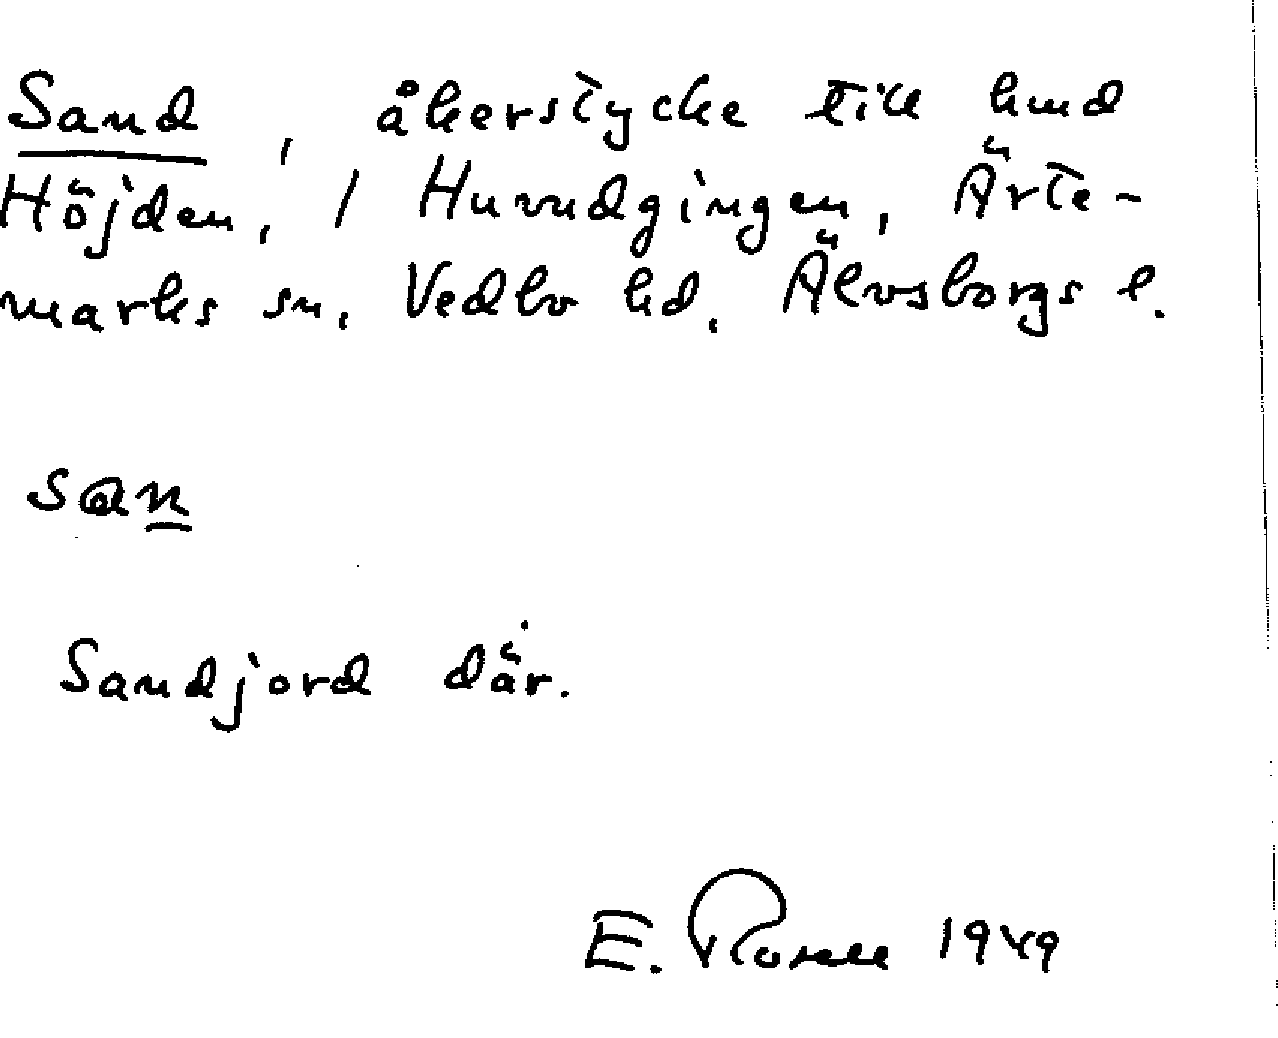 Sand, åkerstycke till hmd
Höjden, / Huvudgingen, Ärte-
marks sn, Vedbo hd, Älvsborgs l.
san
Sandjord där.
E. Rosell 1949